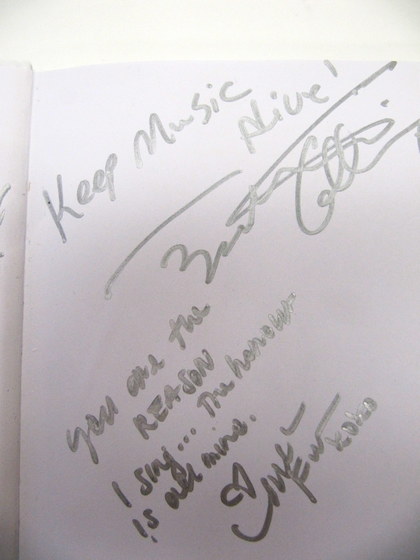 Keep Music
Alive!
you are the
REASON
I sing... The honour
is all mine.